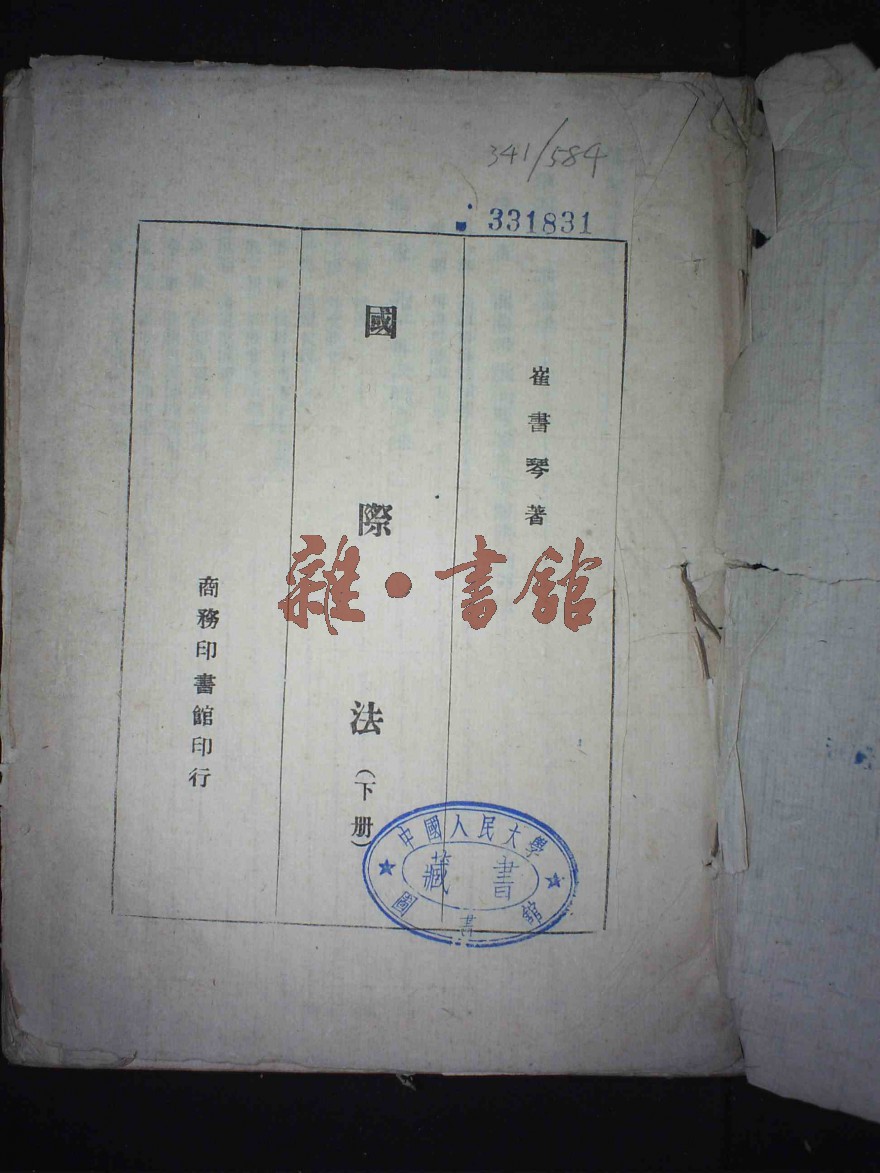 341/584
331831
崔書琴著
國際法（下册）
商務印書館印行
雜·書館
中國人民大學
藏書
圖書館